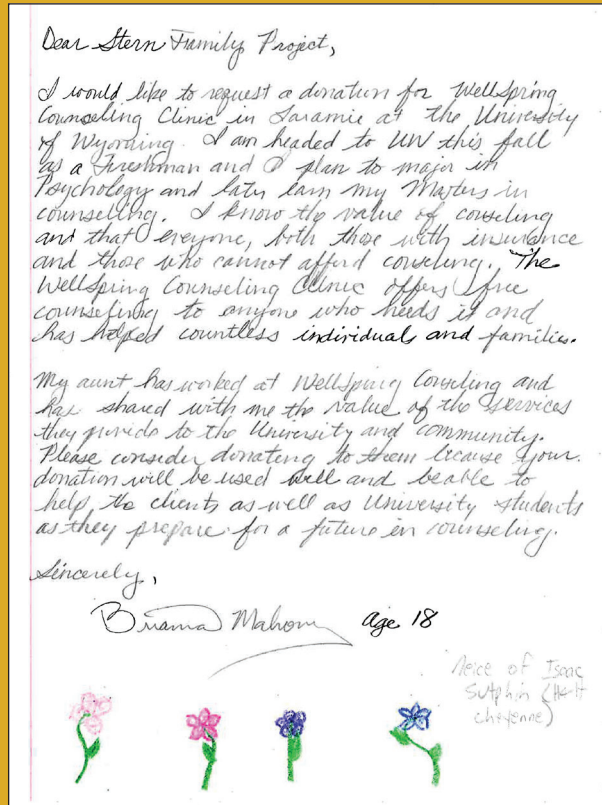 Dear Stern Family Project,
I would like to request a donation for WellSpring
Counseling Clinic in Laramie at the University
of Wyoming. I am headed to UW this fall
as a Freshman and I plan to major in
Psychology and later earn my Masters in
counselling. I know the value of couseling
and that everyone, both those with insurance
and those who cannot afford couseling. The
WellSpring Counseling Clinic offers free
counseling to anyone who needs it and
has helped countless individuals and families.
My aunt has worked at WellSpring Couseling and
has shared with me the value of the services
they provide to the University and community.
Please consider donating to them because your
donation will be used well and beable to
help the clients as well as University students
as they prepare for a future in counseling.
Sincerely,
Brianna Mahoney age 18
Neice of Isaac
Sutphin (H&H
cheyenne)